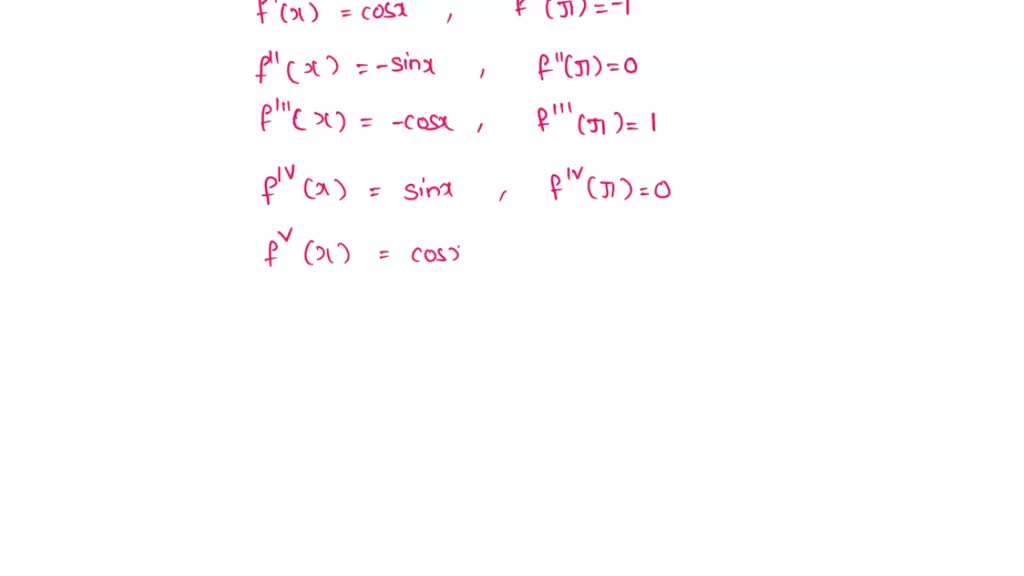 f'(x) = cosx , f'(π) = -1
f''(x) = -sinx , f''(π) = 0
f'''(x) = -cosx , f'''(π) = 1
f^IV(x) = sinx , f^IV(π) = 0
f^V(x) = cosx